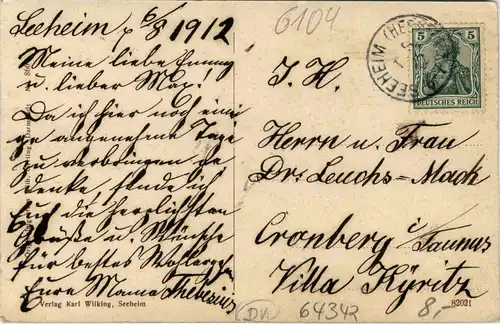 Seeheim 6/8 1912
Meine liebe Emmy
u. lieber Max!
Da ich hier noch eini
ge angenehme Tage
zu verbringen ge
denke, sende ich
Euch die herzlichsten
Grüße u. Wünsche
für bestes Wohlerge
Eure Mama Thebesius
Verlag Karl Wilking, Seeheim
6104
SEEHEIM (HES
5 5
DEUTSCHES REICH
Herrn u. Frau
Dr. Leuchs-Mack
Cronberg i/Taunus
Villa Kÿritz
64342
8,-
82021